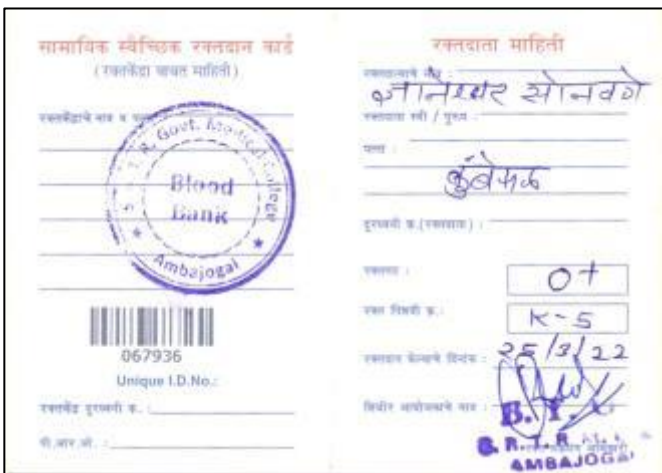 सामायिक स्वैच्छिक रक्तदान कार्ड
(रक्तकेंद्रा बाबत माहिती)
रक्तकेंद्राचे नाव व
S. R. T. R. Govt. Medical College
Blood
Bank
Ambajogai
067936
Unique I.D.No.:
रक्तकेंद्र दुरध्वनी क. :
पी.आर.ओ. :
रक्तदाता माहिती
रक्तदात्याचे नाव :
ज्ञानेश्वर सोनवणे
रक्तदाता स्त्री / पुरुष :
पत्ता :
कुंबेफळ
दुरध्वनी क.(रक्तदाता) :
रक्तगट :
O+
रक्त पिशवी क्र. :
K-5
रक्तदान केल्याचे दिनांक :
25/3/22
शिबीर आयोजकाचे नाव :
S.R.T.R
AMBAJOGAI